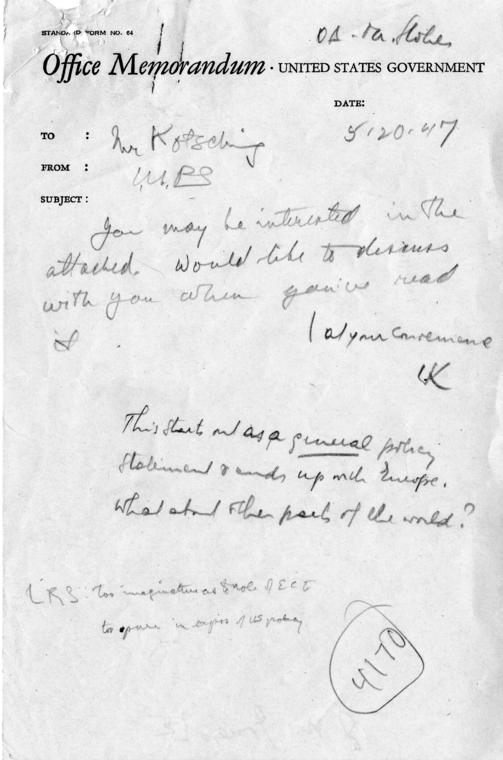 STANDARD FORM NO. 64
OA - Mr. Stokes
Office Memorandum · UNITED STATES GOVERNMENT
DATE:
TO : Mr Kotschnig 5-20-47
FROM :
SUBJECT :
You may be interested in the
attached. Would like to discuss
with you when you've read
it.
at your convenience
WK
This starts out as a general policy
statement & ends up with Europe.
What about other parts of the world?
too imaginative as to role of ECE
too in of US policy
4170